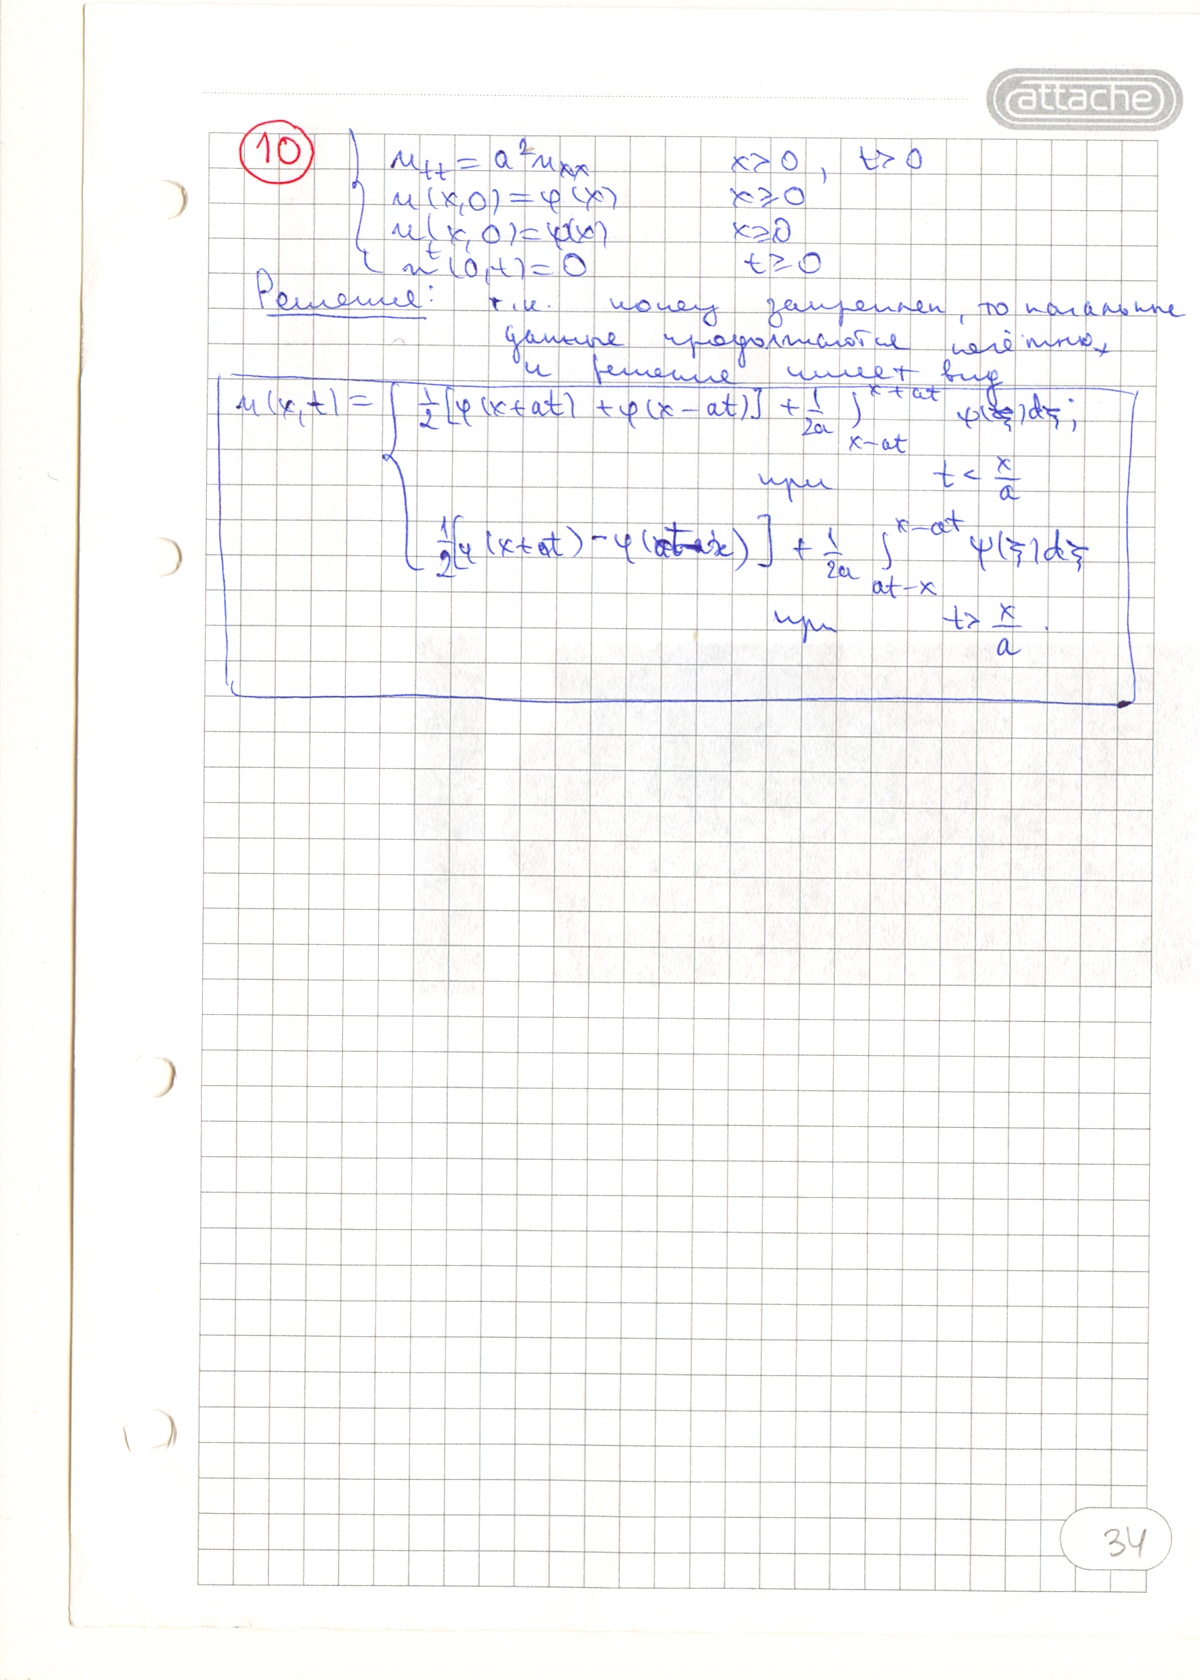 attache
10
u_tt = a²u_xx x>0, t>0
u(x,0)=φ(x) x≥0
u_t(x,0)=ψ(x) x≥0
u(0,t)=0 t≥0
Решение: т.к. конец закреплен, то начальные
данные продолжаются нечётно,
и решение имеет вид
u(x,t) = { 1/2[φ(x+at) + φ(x-at)] + 1/2a ∫_{x-at}^{x+at} ψ(ξ)dξ;
при t < x/a
1/2[φ(x+at) - φ(at-x)] + 1/2a ∫_{at-x}^{x-at} ψ(ξ)dξ
при t> x/a.
34